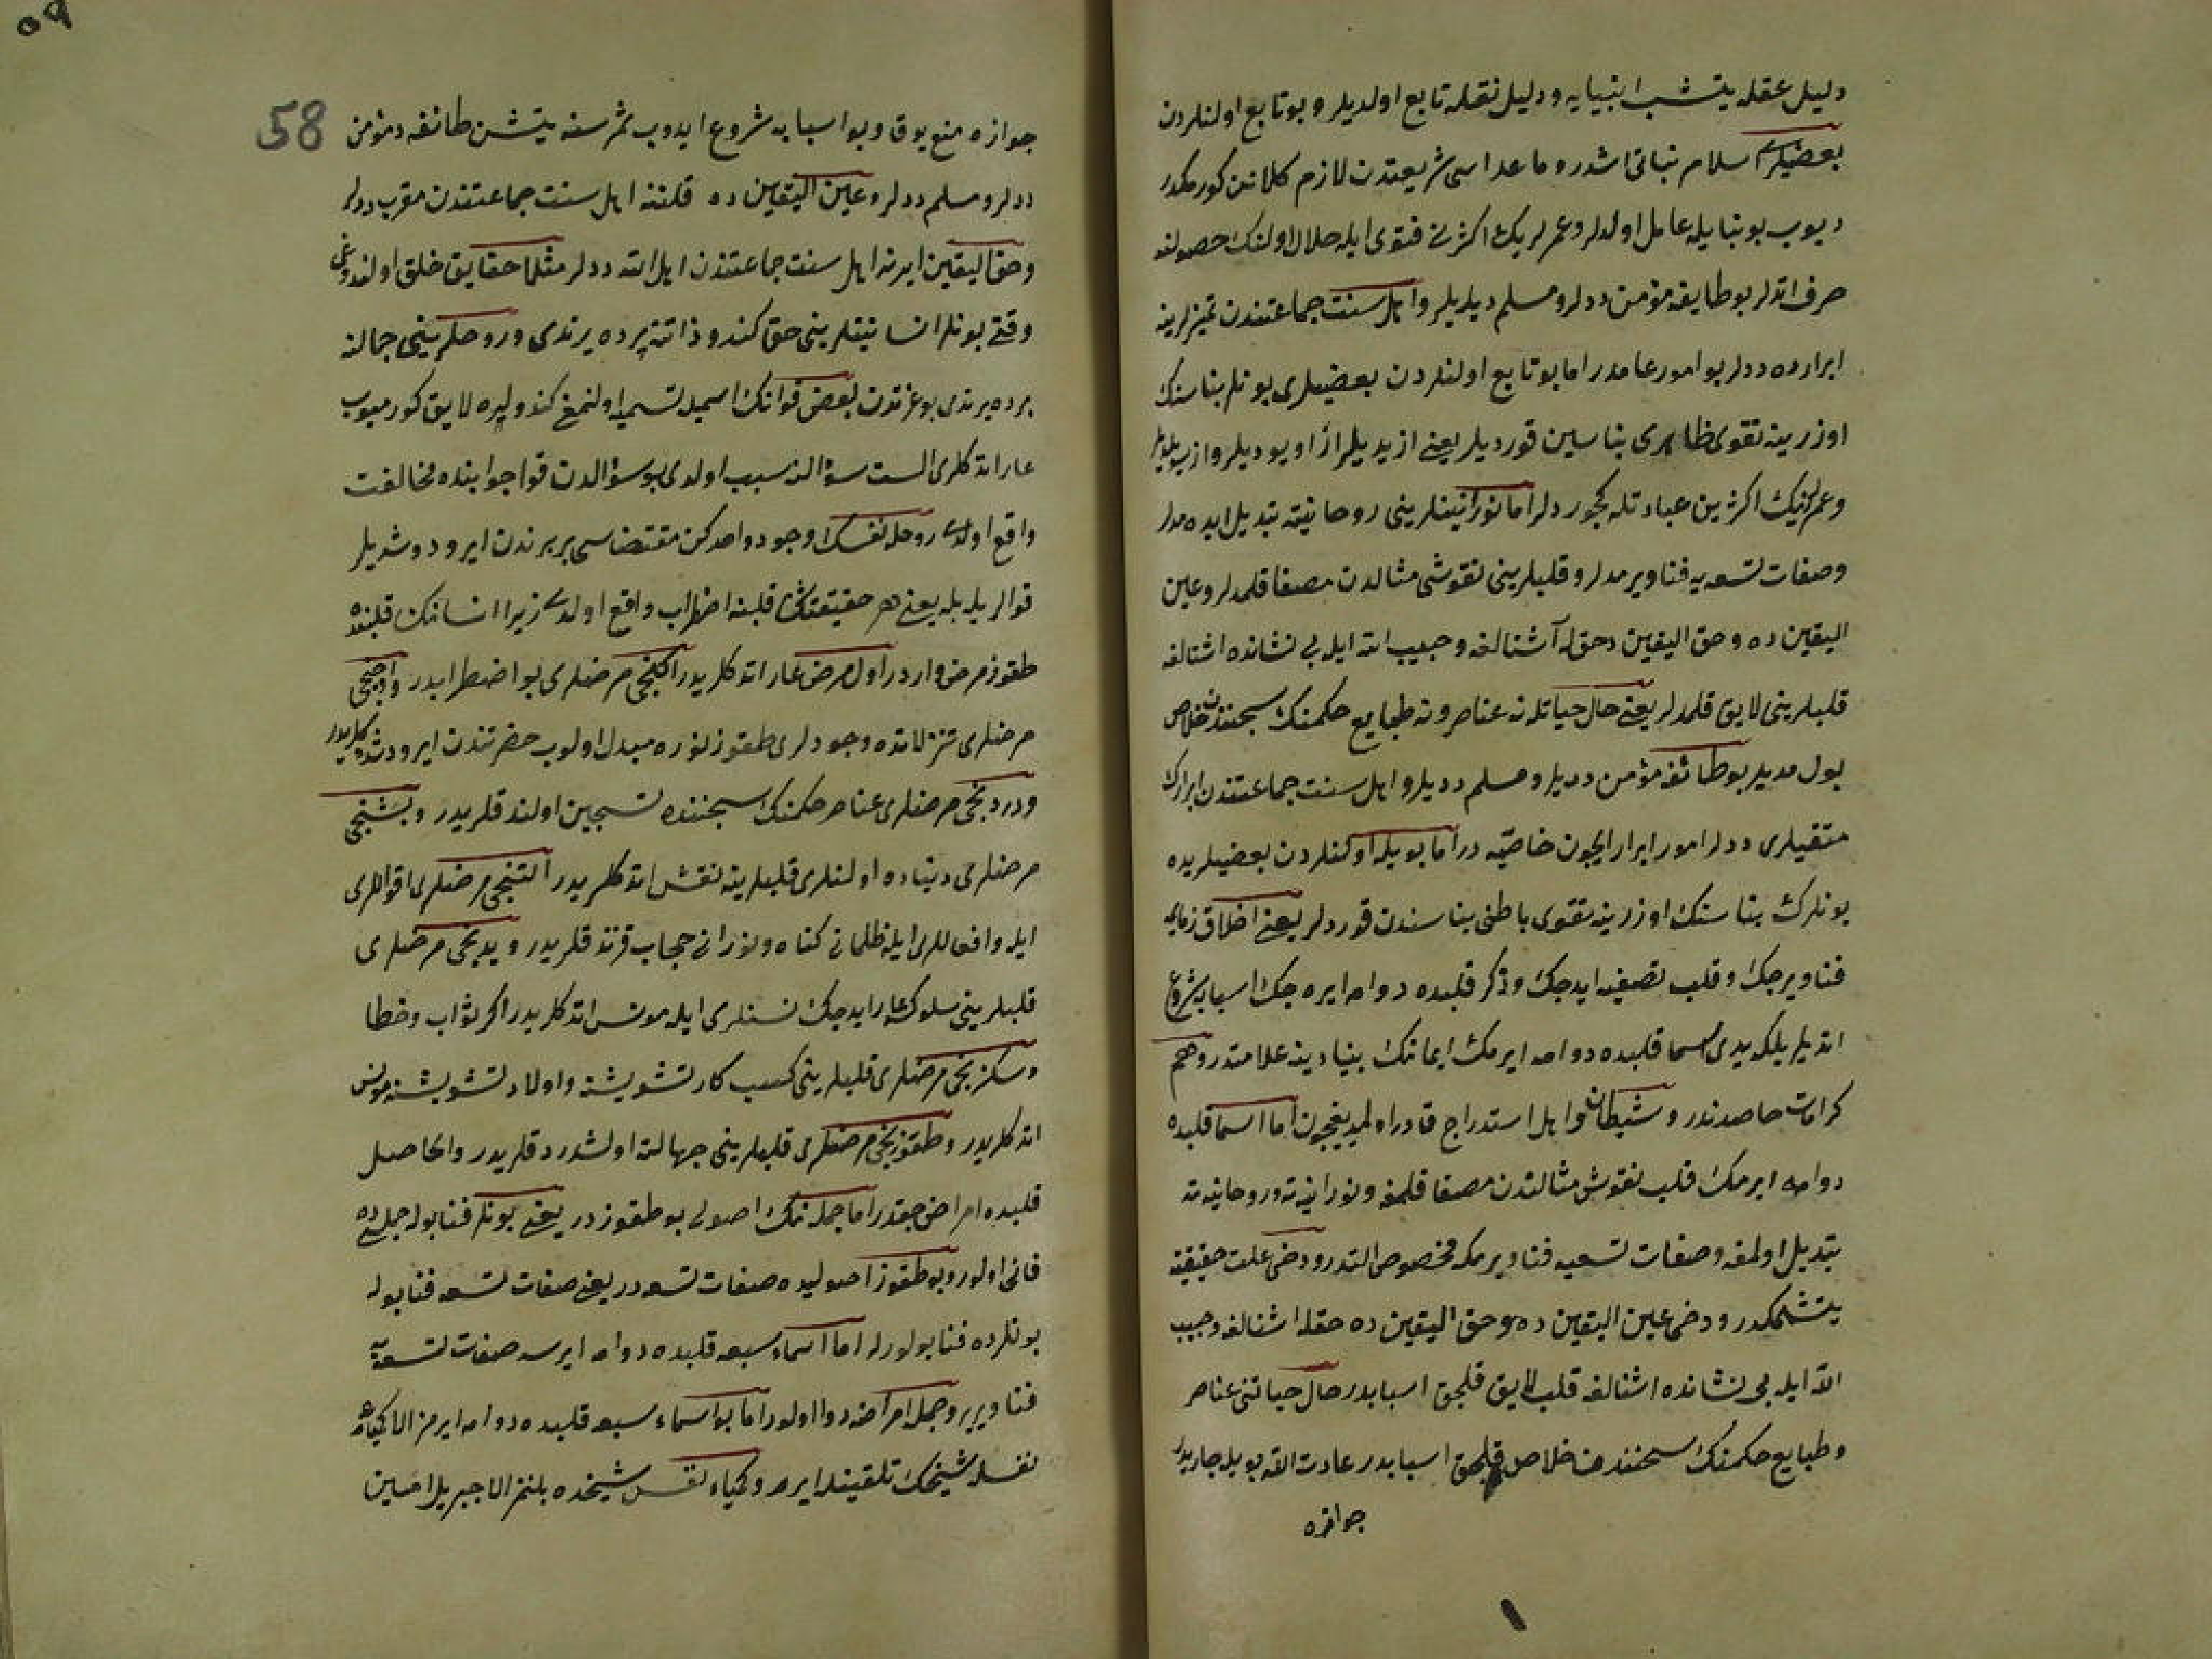 دليل عقله يتشب انبيايه ودليل نقله تابع اولديلر وبو تابع اولنلردن
بعضيلرى اسلام بناتى اشدره ماعداسى شريعتدن لازم كلانى كورمكدر
ديوب بو بنايله عامل اولدلر وعمرلرينك اكثرنى فتوى ايله حلال اولنك حصولنه
صرف اتدلر بو طايفه مؤمن ددلر ومسلم ديديلر واهل سنت جماعتندن تميزلرينه
ابرارده ددلر بو امور عامدر اما بو تابع اولنلردن بعضيلرى بونلر بناسنك
اوزرينه تقوى ظاهرى بناسين قورديلر يعنى از يديلر از اويوديلر واز
وعمرلرينك اكثرين عبادتله كچوردلر اما نورانيتلرينى روحانيته تبديل ايده مدلر
وصفات تسعه يه فنا ويرمدلر وقلبلرينى نقوشى مثالدن مصفا قلمدلر وعين
اليقين ده وحق اليقين دحقله آشنالغه وحبيب الله ايله بى نشانده اشنالغه
قلبلرينى لايق قلمدلر يعنى حال حياتلرنه عناصر ونه طبايع حكمنك سجنندن خلاص
بولمديلر بو طائفه مؤمن ديديلر ومسلم دديلر واهل سنت جماعتندن ابرارك
متقيلرى ددلر امور ابرار ايچون خاصيه در اما بويله اولنلردن بعضيلريده
بونلرك بناسنك اوزرينه تقوى باطنى بناسندن قوردلر يعنى اخلاق زمايمه
فنا ويرجك وقلب تصفيه ايدجك وذكر قلبده دوامه ايره جك اسبابه شروع
اتديلر بلكه يدى اسما قلبده دوامه ايرمك ايمانك بنيادينه علامتدر وهم
كرامات حاصدندر وشيطان واهل استدراج قادر اولمديغيچون اما اسما قلبده
دوامه ايرمك قلب نقوش مثالتدن مصفا قلمغه ونورانيته وروحانيته
تبديل اولمغه وصفات تسعيه فنا ويرمكه مخصوص التدر ودخى علت حقيقته
يتشلمكدر ودخى عين اليقين ده وحق اليقين ده حقله اشنالغه وحبيب
الله ايله بى نشانده اشنالغه قلب لايق قلجق اسبابدر حال حياتنى عناصر
وطبايع حكمنك سجنندن خلاص قلجق اسبابدر عادت الله بويله جاريدر
جوازه
58
جوازه منع يوق وبو اسبابه شروع ايدوب ثمرسنه يتشن طائفه دمؤمن
ددلر ومسلم ددلر وعين اليقين ده قلننه اهل سنت جماعتندن مقرب ددلر
وحق اليقين ايرنه اهل سنت جماعتندن اهل الله ددلر مثلا حقايق خلق اولندوغى
وقتى بونلر انسانيتلرينى حق كندو ذاتنه پرده يرندى وروحلرينى جمالنه
پرده يرندى بو عزتدن بعض قوانك اسميله تسميه اولنمغى كندولره لايق كورميوب
عار اتدكلرى الست سؤالنه سبب اولدى بو سؤالدن قوا جوابنده مخالفت
واقع اولدى روحله نفسك وجود واحدكن مقتضاسى بربرندن ايرو دوشديلر
قوالريله بله يعنى هر حقيقتك قلبنه اضطراب واقع اولدى زيرا انسانك قلبنده
طقوز مرض واردر اول مرض عار اتدكلريدر ايكنجى مرضلرى بو اضطرابدر واوچنجى
مرضلرى تنزلاتده وجودلرى طقوز نوره مبدل اولوب حضرتندن ايرو دشدكلريدر
ودردنجى مرضلرى عناصر حكمنك سجننده تسجين اولندقلريدر وبشنجى
مرضلرى دنياده اولنلرى قلبلرينه نقش اتدكلريدر التنجى مرضلرى اقواللرى
ايله وافعاللرى ايله ظلمانى كناه ونورانى حجاب قزندقلريدر ويدنجى مرضلرى
قلبلرينى سلوك عار ايدجك نسنلرى ايله مونس اتدكلريدر اكر ثواب وخطا
وسكزنجى مرضلرى قلبلرينى كسب كار تشويشنه واولاد تشويشنه مونس
اتدكلريدر وطقوزنجى مرضلرى قلبلرينى جهالته اولشدردقلريدر والحاصل
قلبده امراض چقدر اما جمله نك اصولى بو طقوزدر يعنى بونلر فنا بولسه جمله ده
فانى اولور وبو طقوز اصوليده صفات تسعه در يعنى صفات تسعه فنا بوله
بونلرده فنا بولورلر اما اسماء سبعه قلبده دوامه ايرسه صفات تسعه يه
فنا ويرير وجمله امراضه دوا اولور اما بو اسماء سبعه قلبده دوامه ايرمز الا كيمياء
نفسله شيخك تلقينله ايرر وكيمياء نفس شيخده بلنمز الا جبريل امين